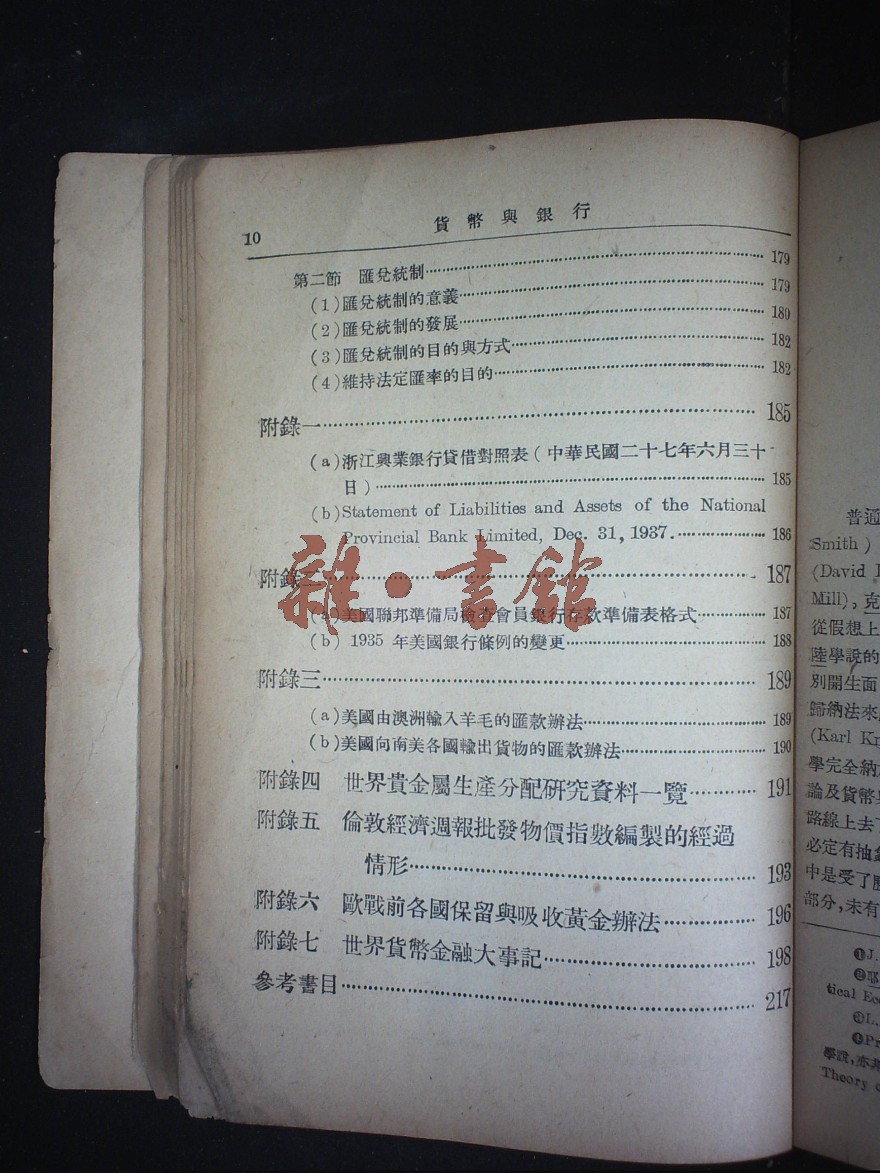 10
貨幣與銀行
第二節 匯兌統制……179
(1)匯兌統制的意義……179
(2)匯兌統制的發展……180
(3)匯兌統制的目的與方式……182
(4)維持法定匯率的目的……182
附錄一……185
(a)浙江興業銀行貸借對照表(中華民國二十七年六月三十
日)……185
(b)Statement of Liabilities and Assets of the National
Provincial Bank Limited, Dec. 31, 1937.……186
附錄二……187
(a)美國聯邦準備局檢查會員銀行存款準備表格式……187
(b) 1935 年美國銀行條例的變更……188
附錄三……189
(a)美國由澳洲輸入羊毛的匯款辦法……189
(b)美國向南美各國輸出貨物的匯款辦法……190
附錄四 世界貴金屬生產分配研究資料一覽……191
附錄五 倫敦經濟週報批發物價指數編製的經過
情形……193
附錄六 歐戰前各國保留與吸收黃金辦法……196
附錄七 世界貨幣金融大事記……198
參考書目……217
雜·書館
普通
Smith)
(David
Mill), 克
從假想上
陸學說的
別開生面
歸納法來
(Karl
學完全納
論及貨幣
路線上去
必定有抽
中是受了
部分,未有
❶J.
❷
tical
❸L.
❹
學說,亦
Theory